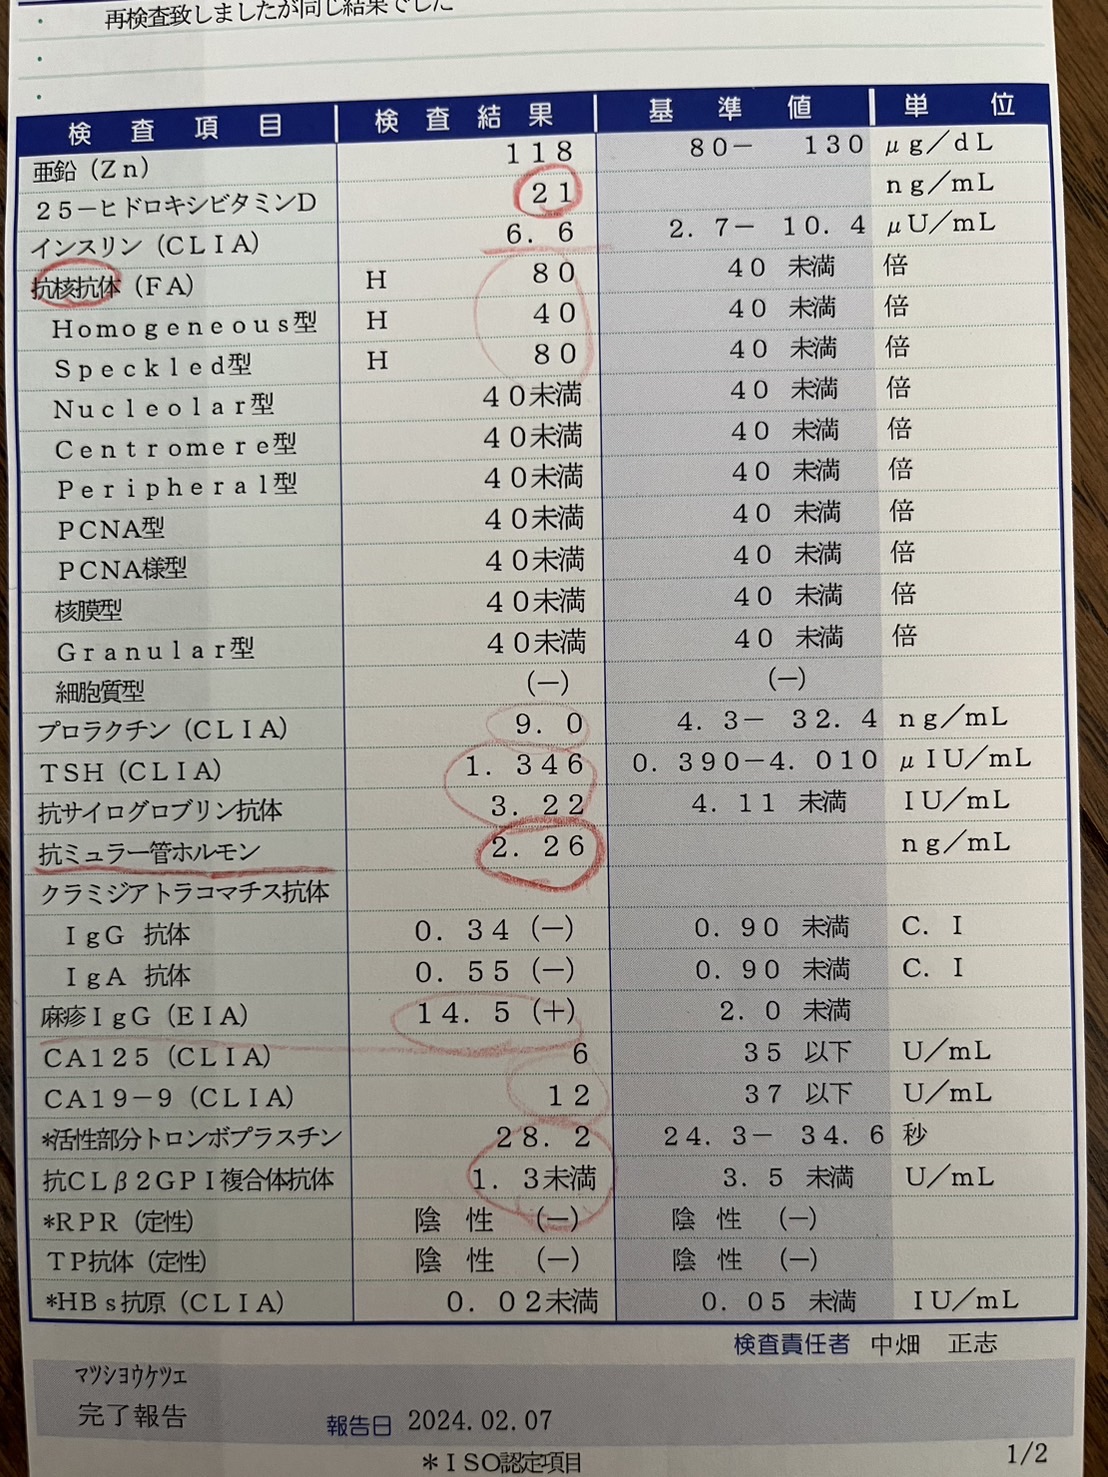 再検査致しましたが同じ結果でした
検査項目 検査結果 基準値 単位
亜鉛(Zn) 118 80- 130 μg/dL
25-ヒドロキシビタミンD 21 ng/mL
インスリン(CLIA) 6.6 2.7- 10.4 μU/mL
抗核抗体(FA) H 80 40 未満 倍
Homogeneous型 H 40 40 未満 倍
Speckled型 H 80 40 未満 倍
Nucleolar型 40未満 40 未満 倍
Centromere型 40未満 40 未満 倍
Peripheral型 40未満 40 未満 倍
PCNA型 40未満 40 未満 倍
PCNA様型 40未満 40 未満 倍
核膜型 40未満 40 未満 倍
Granular型 40未満 40 未満 倍
細胞質型 (-) (-)
プロラクチン(CLIA) 9.0 4.3- 32.4 ng/mL
TSH(CLIA) 1.346 0.390-4.010 μIU/mL
抗サイログロブリン抗体 3.22 4.11 未満 IU/mL
抗ミュラー管ホルモン 2.26 ng/mL
クラミジアトラコマチス抗体
IgG 抗体 0.34(-) 0.90 未満 C.I
IgA 抗体 0.55(-) 0.90 未満 C.I
麻疹IgG(EIA) 14.5(+) 2.0 未満
CA125(CLIA) 6 35 以下 U/mL
CA19-9(CLIA) 12 37 以下 U/mL
*活性部分トロンボプラスチン 28.2 24.3- 34.6 秒
抗CLβ2GPI複合体抗体 1.3未満 3.5 未満 U/mL
*RPR(定性) 陰性 (-) 陰性 (-)
TP抗体(定性) 陰性 (-) 陰性 (-)
*HBs抗原(CLIA) 0.02未満 0.05 未満 IU/mL
検査責任者 中畑 正志
マツシヨウケツエ
完了報告 報告日 2024.02.07
*ISO認定項目 1/2